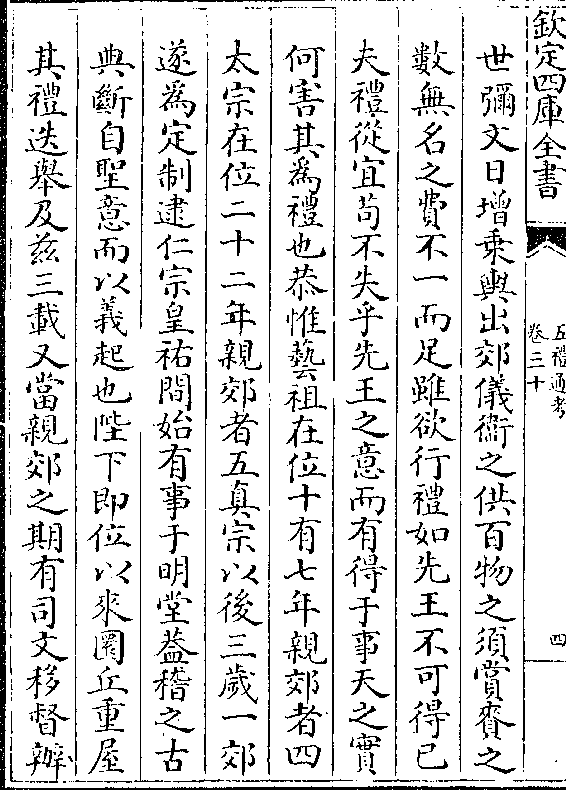 欽定四庫全書
五禮通考
卷二十
四
世彌文日增乘輿出郊儀衛之供百物之須賞賚之
數無名之費不一而足雖欲行禮如先王不可得已
夫禮從宜苟不失乎先王之意而有得于事天之實
何害其為禮也恭惟藝祖在位十有七年親郊者四
太宗在位二十二年親郊者五真宗以後三歲一郊
遂為定制逮仁宗皇祐間始有事于明堂蓋稽之古
典斷自聖意而以義起也陛下即位以來圜丘重屋
其禮迭舉及兹三載又當親郊之期有司文移督辦